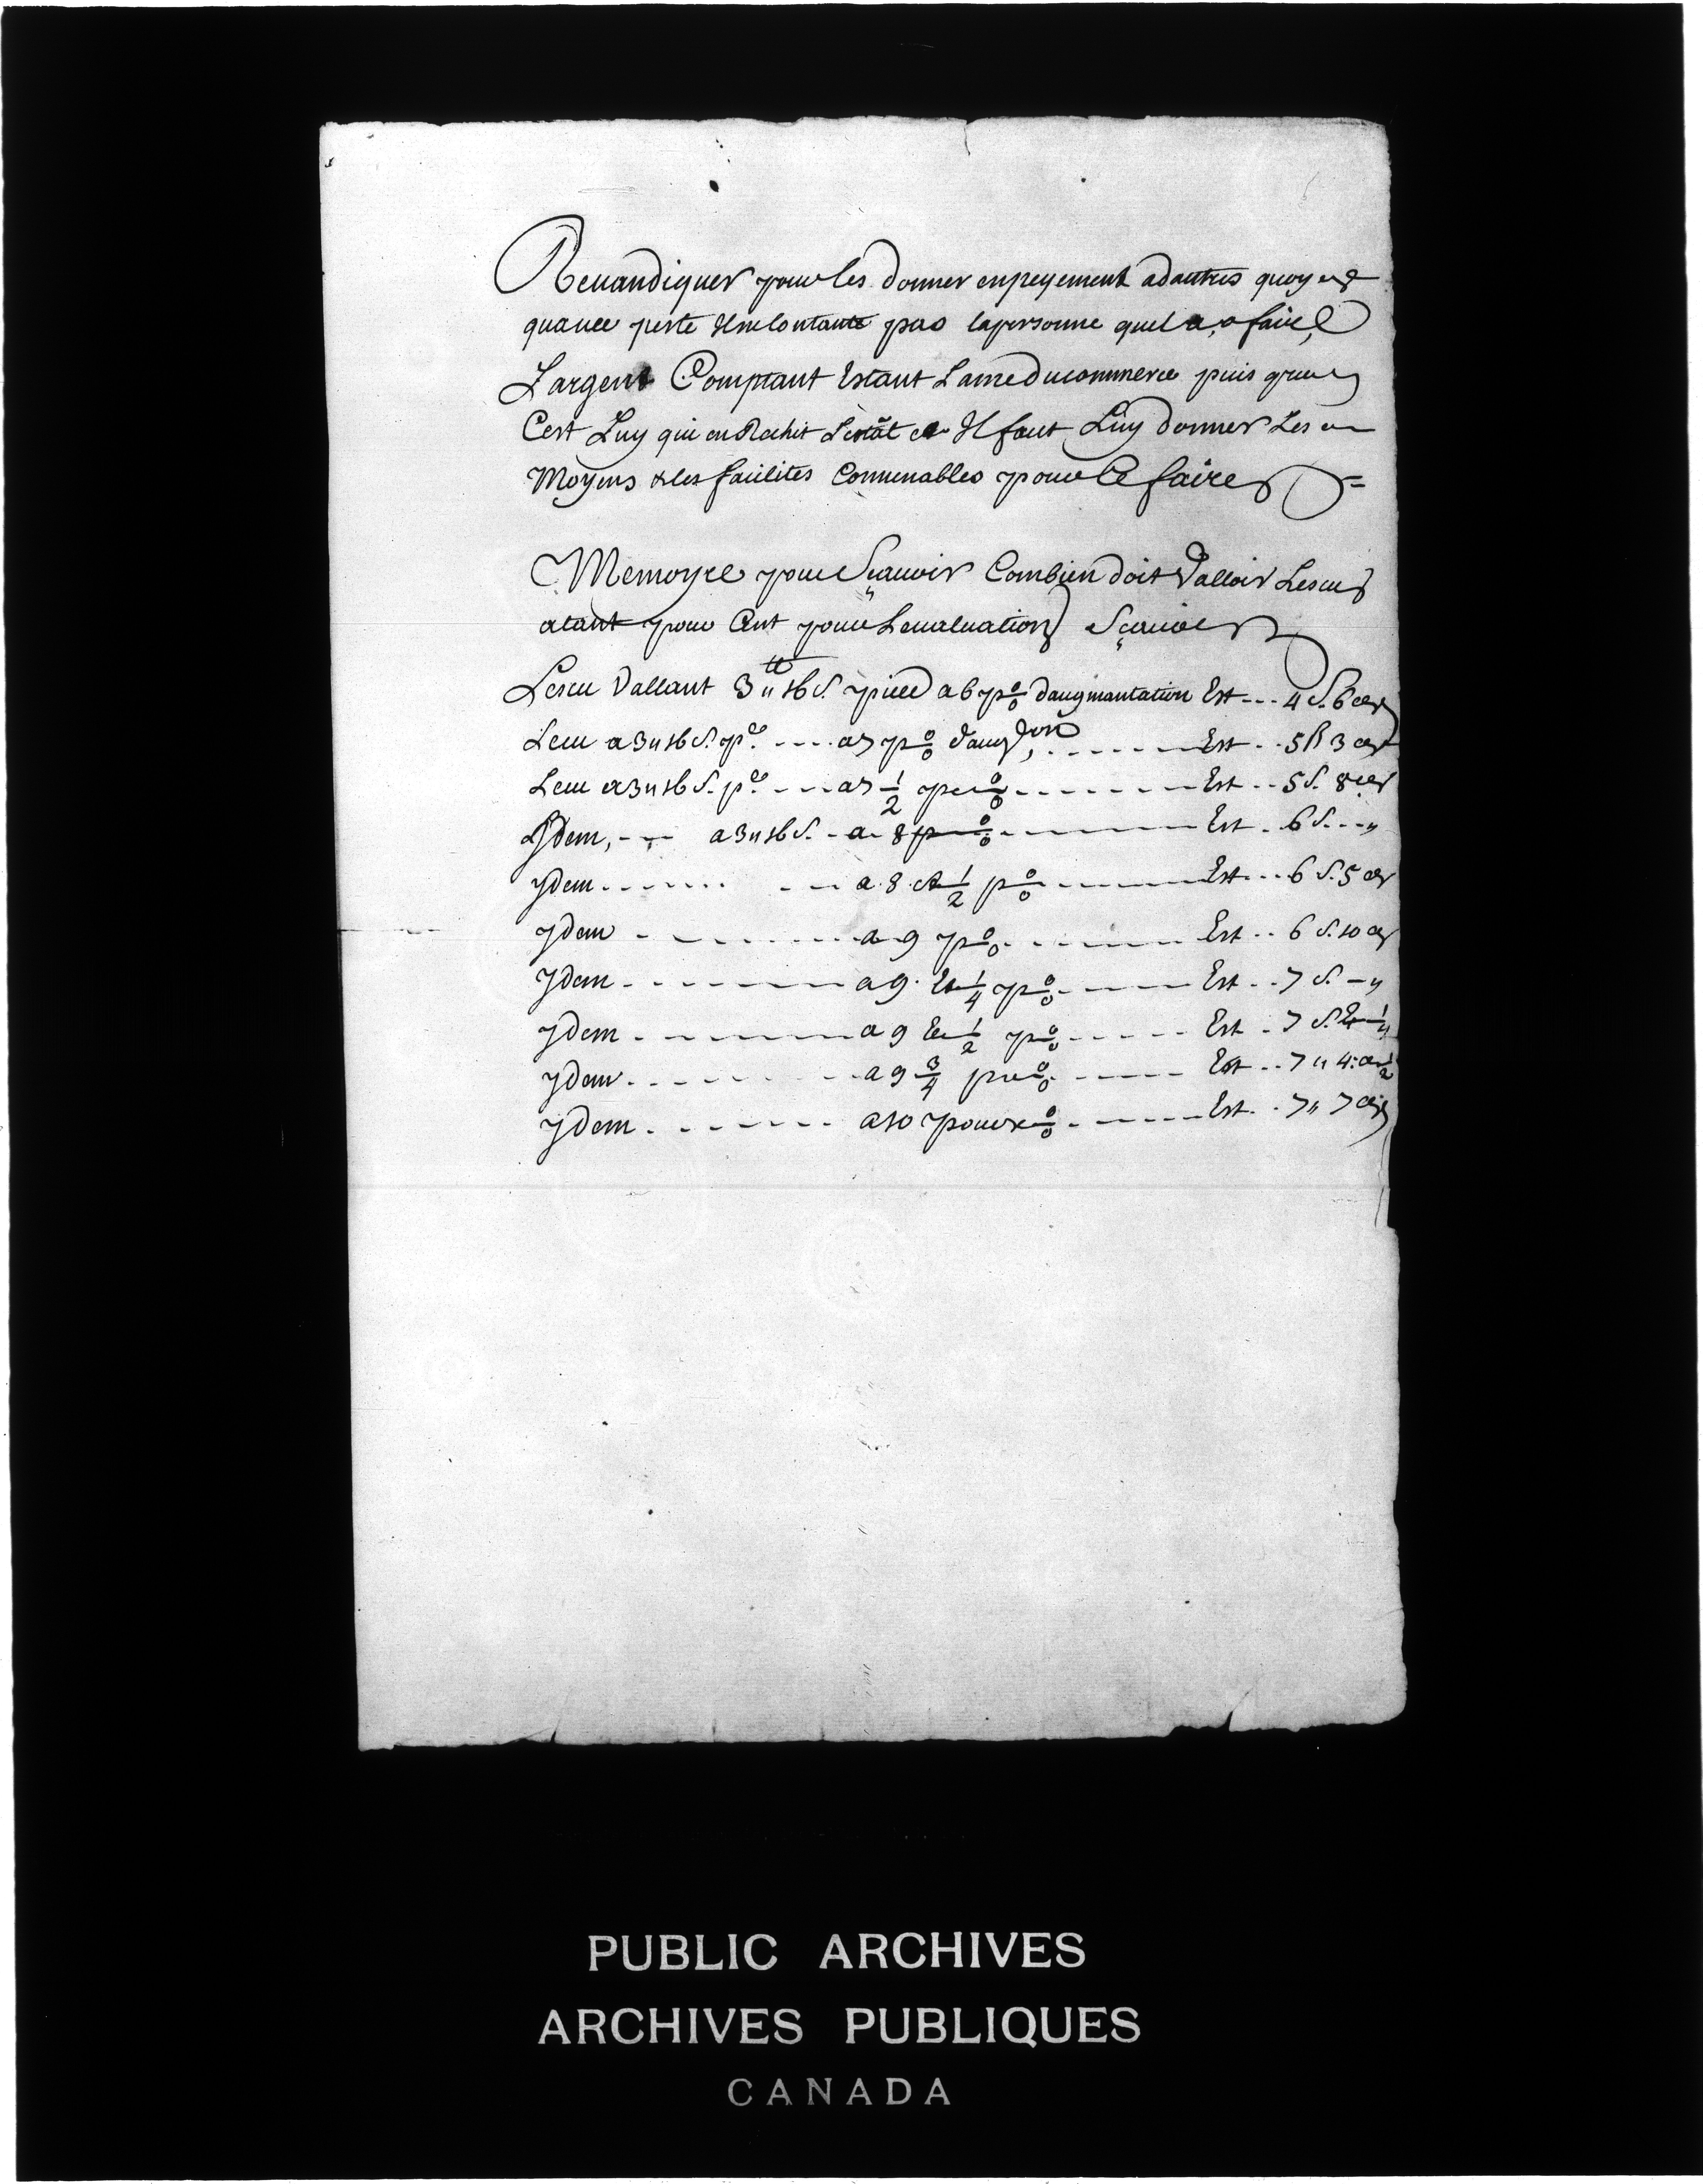 Reuandiquer pour les donner enpeyement adautres quoy que
quauec perte Il mecontante pas lapersonne quel a, a faire,
Largent Comptant Estant Lame Ducommerce puis que
Cest Luy qui en Richit Lestat et Il faut Luy donner Les
Moyens & les facilites Conuenables pour Ce faire =
Memoyre pour Sçauoir Combien doit Valloir Lescu
atant pour Cent pour Leualuation Sçauoir
Lescu Vallant 3tt " 16 s. piece a 6 p % daugmantation Est --- 4 s. 6 d
Lecu a 3 " 16 s. pce ---- a 7 p % daugon, ------ Est -- 5 s 3 d
Lecu a 3 " 16 s. pce --- a 7 1/2 per % ------ Est -- 5 s. 8 d
Ydem, --- a 3 " 16 s. - a 8 p % ------ Est - 6 s. -- "
ydem ------ --- a 8 et 1/2 p % ------ Est --- 6 s. 5 d
ydem - ------ a 9 p % ------ Est -- 6 s. 10 d
ydem ------ a 9 Et 1/4 p % ------ Est -- 7 s. - "
ydem ------ a 9 Et 1/2 p % ------ Est - 7 s.
ydem ------ a 9 3/4 pr % ------ Est -- 7 " 4 d 1/2
ydem ------ a 10 pour % ------ Est -- 7 " 7 d
PUBLIC ARCHIVES
ARCHIVES PUBLIQUES
CANADA